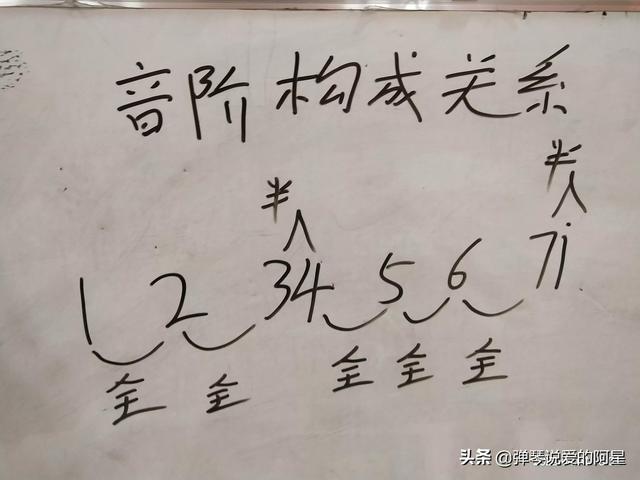 音阶构成关系
半 半
1 2 34 5 6 7i
全 全 全 全 全
头条 @弹琴说爱的阿星